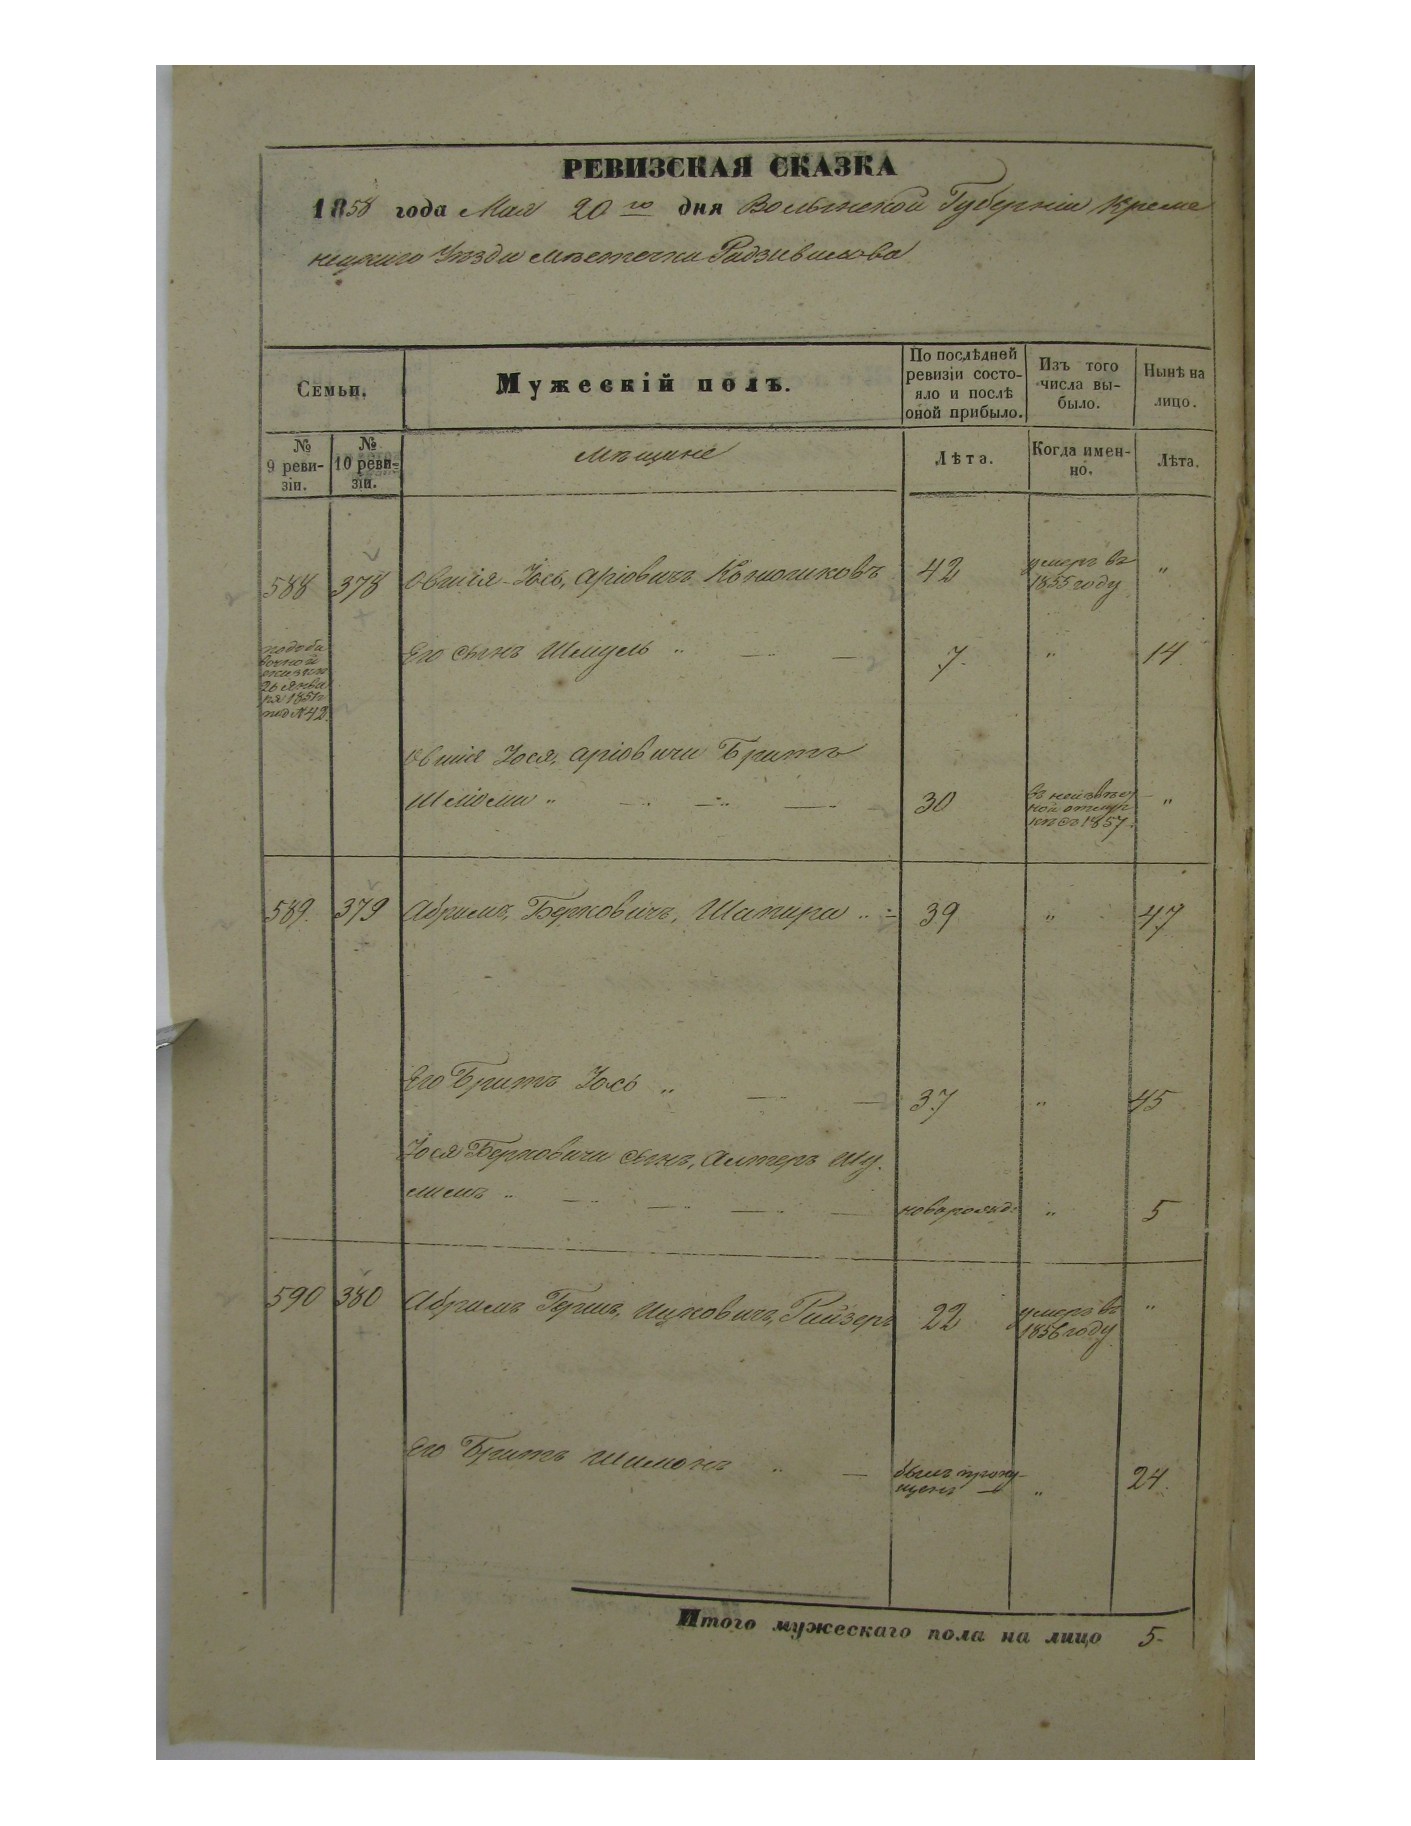 РЕВИЗСКАЯ СКАЗКА
1858 года Мая 20го дня Волынской Губерніи Креме
нецкаго Уѣзда мѣстечка Радзивилова
Семьи.
Мужескій полъ.
По послѣдней ревизіи состо-
яло и послѣ оной прибыло.
Изъ того числа вы-
было.
Нынѣ на лицо.
№ 9 реви-
зіи.
№ 10 реви-
зіи.
мѣщане
Лѣта.
Когда имен-
но.
Лѣта.
588 378 Овшія-Іось, Аріовичъ 42 умеръ въ 1855 году "
по доба
вочной
сказки
26 Янва
ря 1851г
под №42.
Его сынъ Шмуль " 7. " 14
Овшія Іося, Аріовича Братъ
Шліома " 30 въ неизвѣст
ной отлуч
кѣ съ 1857. "
589. 379 Абрамъ, Берковичъ, Шапира " 39 " 47
Его Братъ Іось " 37 " 45
Іося Берковича сынъ, Алтеръ Шу.
лимъ " новорожд: " 5
590 380 Абрамъ Гершъ, Ицковичъ, Райзеръ 22 умеръ въ 1856 году "
Его Братъ Шимонъ " былъ пропу-
щенъ " 24.
Итого мужескаго пола на лицо 5-